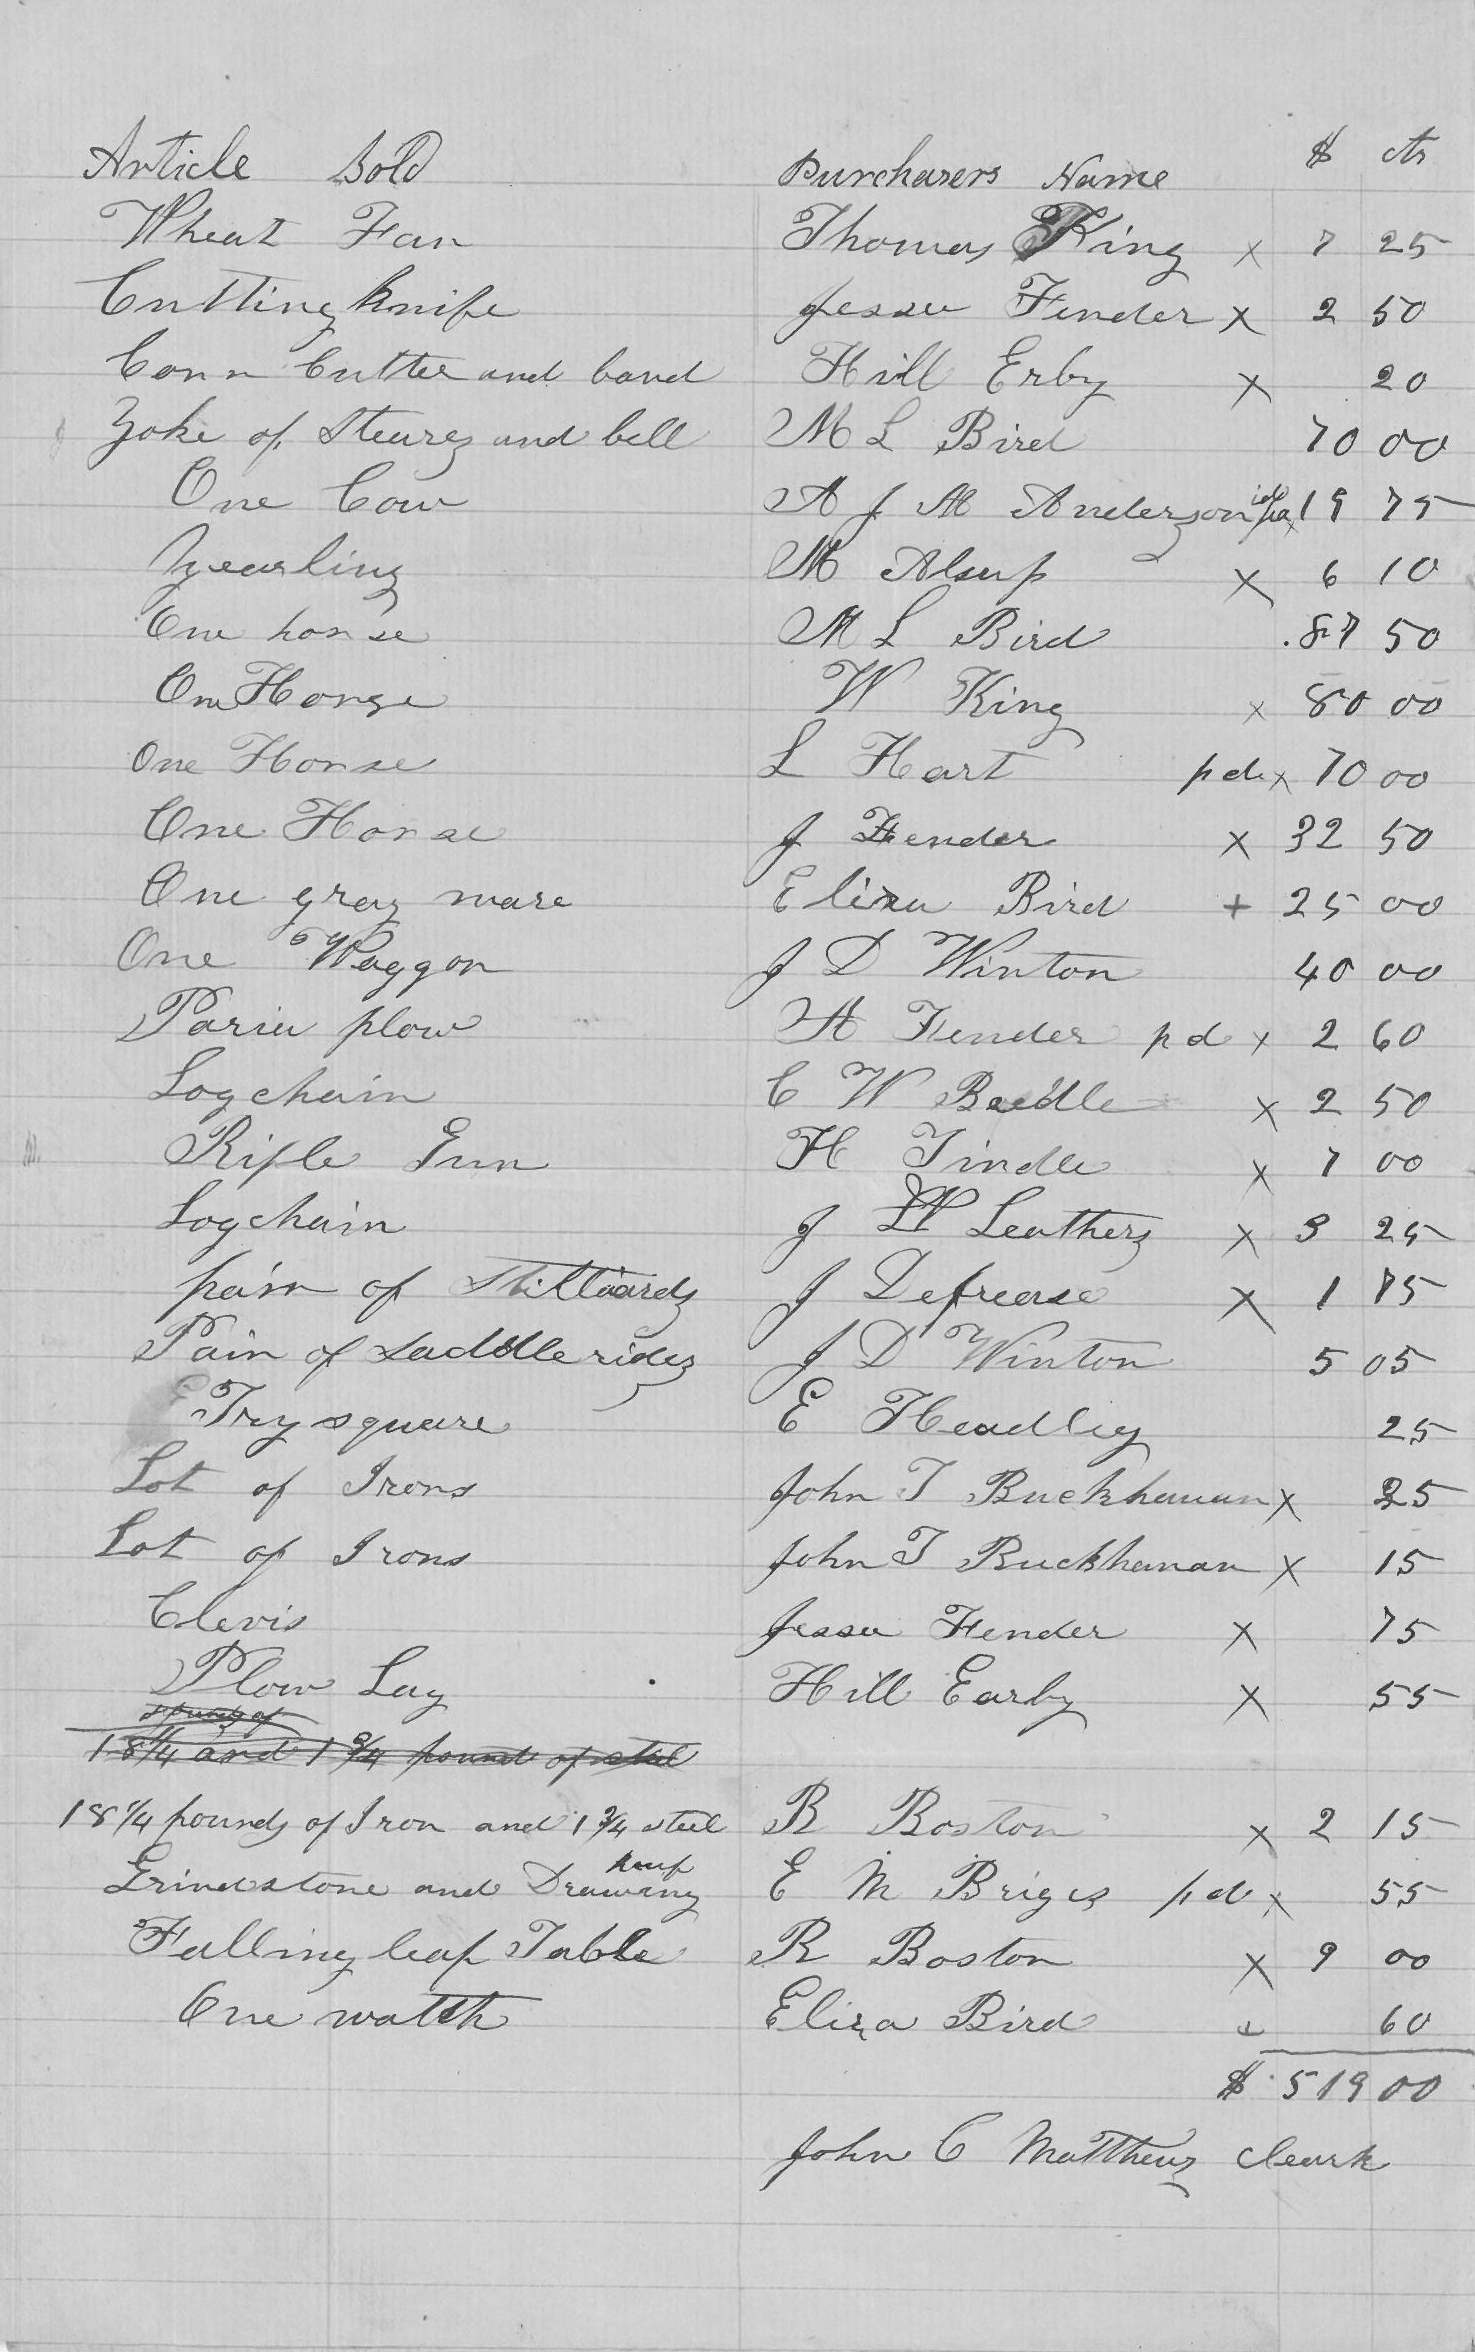 Article Sold Purchasers Name $ cts
Wheat Fan Thomas King x 7 25
Cutting knife Jesse Fender x 2 50
Corn Cutter and band Hill Erby x 20
Yoke of Steurs and bell M L Bird 70 00
One Cow A J M Anderson 19 75
Yearling M Alsup x 6 10
One horse M L Bird 87 50
On Horse W King x 80 00
One Horse L Hart pd x 70 00
One Horse J Fender x 32 50
One gray mare Eliza Bird + 25 00
One Waggon J D Winton 40 00
Pariu plow A Fender pd x 2 60
Log chain C W Beedle x 2 50
Rifle Gun H Tindle x 7 00
Log chain J W Leathers x 3 25
pair of Stilliards J Defrease x 1 75
Pair of saddlerids J D Winton 5 05
Try square E Headley 25
Lot of Irons John T Buckhanan x 25
Lot of Irons John T Buckhanan x 15
Clevis Jesse Fender x 75
Plow Lay Hill Earby x 55
pounds of
18 1/4 and 1 3/4 pound of steel
18 1/4 pounds of Iron and 1 3/4 steel R Boston x 2 15
Grindstone and Drawing knif E M Brigs pd x 55
Falling leaf Table R Boston x 9 00
One watth Eliza Bird + 60
$ 519 00
John C Matthews Cleark